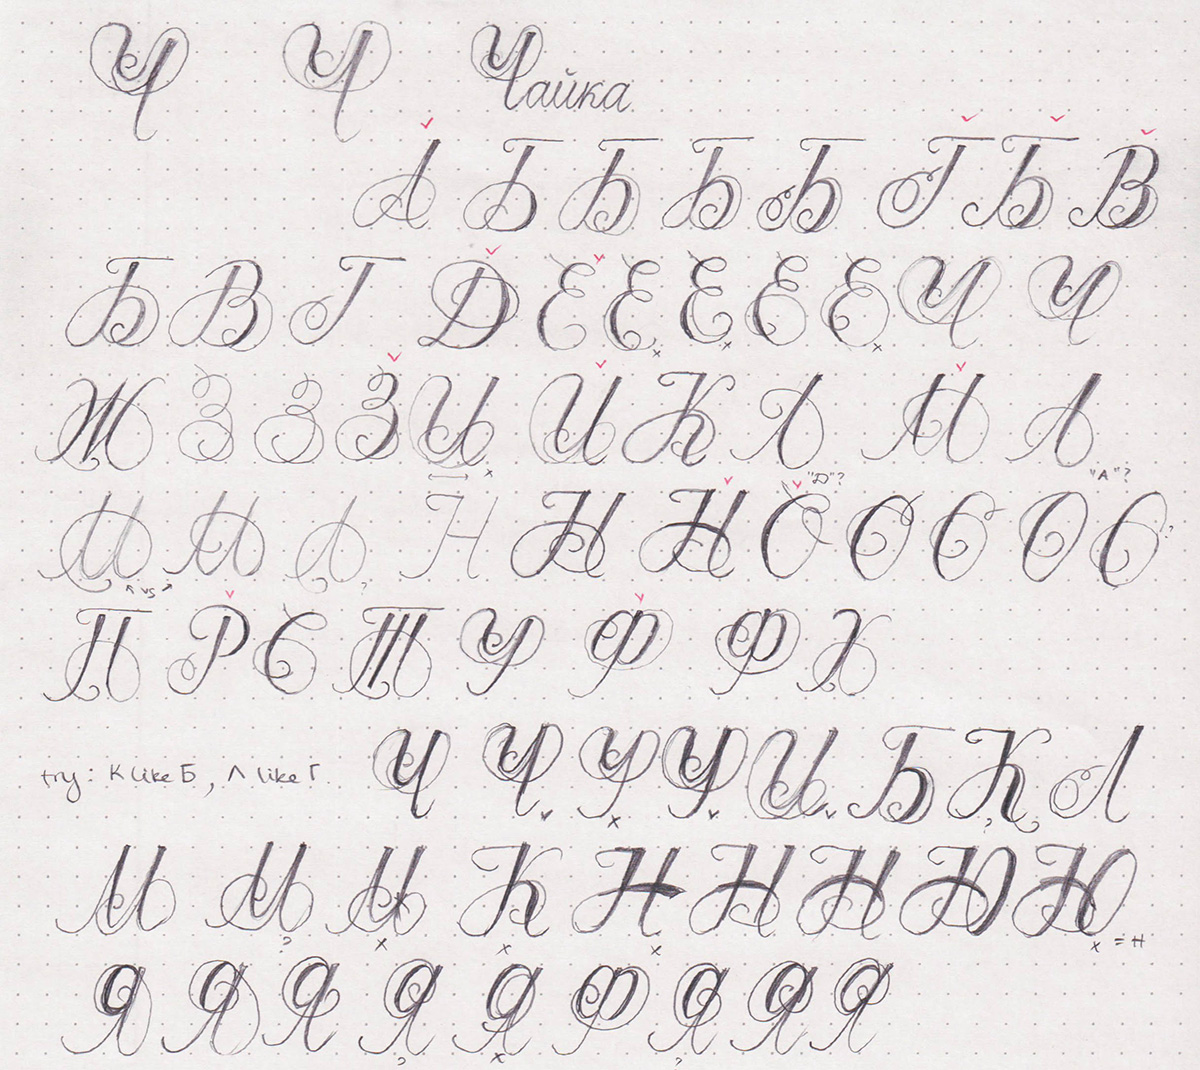 Ч Ч Чайка
А Б Б Б Б Г Б В
Б В Г Д Е Е Е Е Е Ч Ч
Ж З З З И И К Л М Л
"Д"? "А"?
М М Л Н Н Н О О О О О ?
↖ vs ↗ ?
П Р С Т У Ф Ф Х
try: К like Б, Л like Г. Ч Ч У У И Б К Л
М М М К Н Н Н Ю Ю
? x x x x = Н
Я Я Я Я Я Ф Я Я Я
? x ?